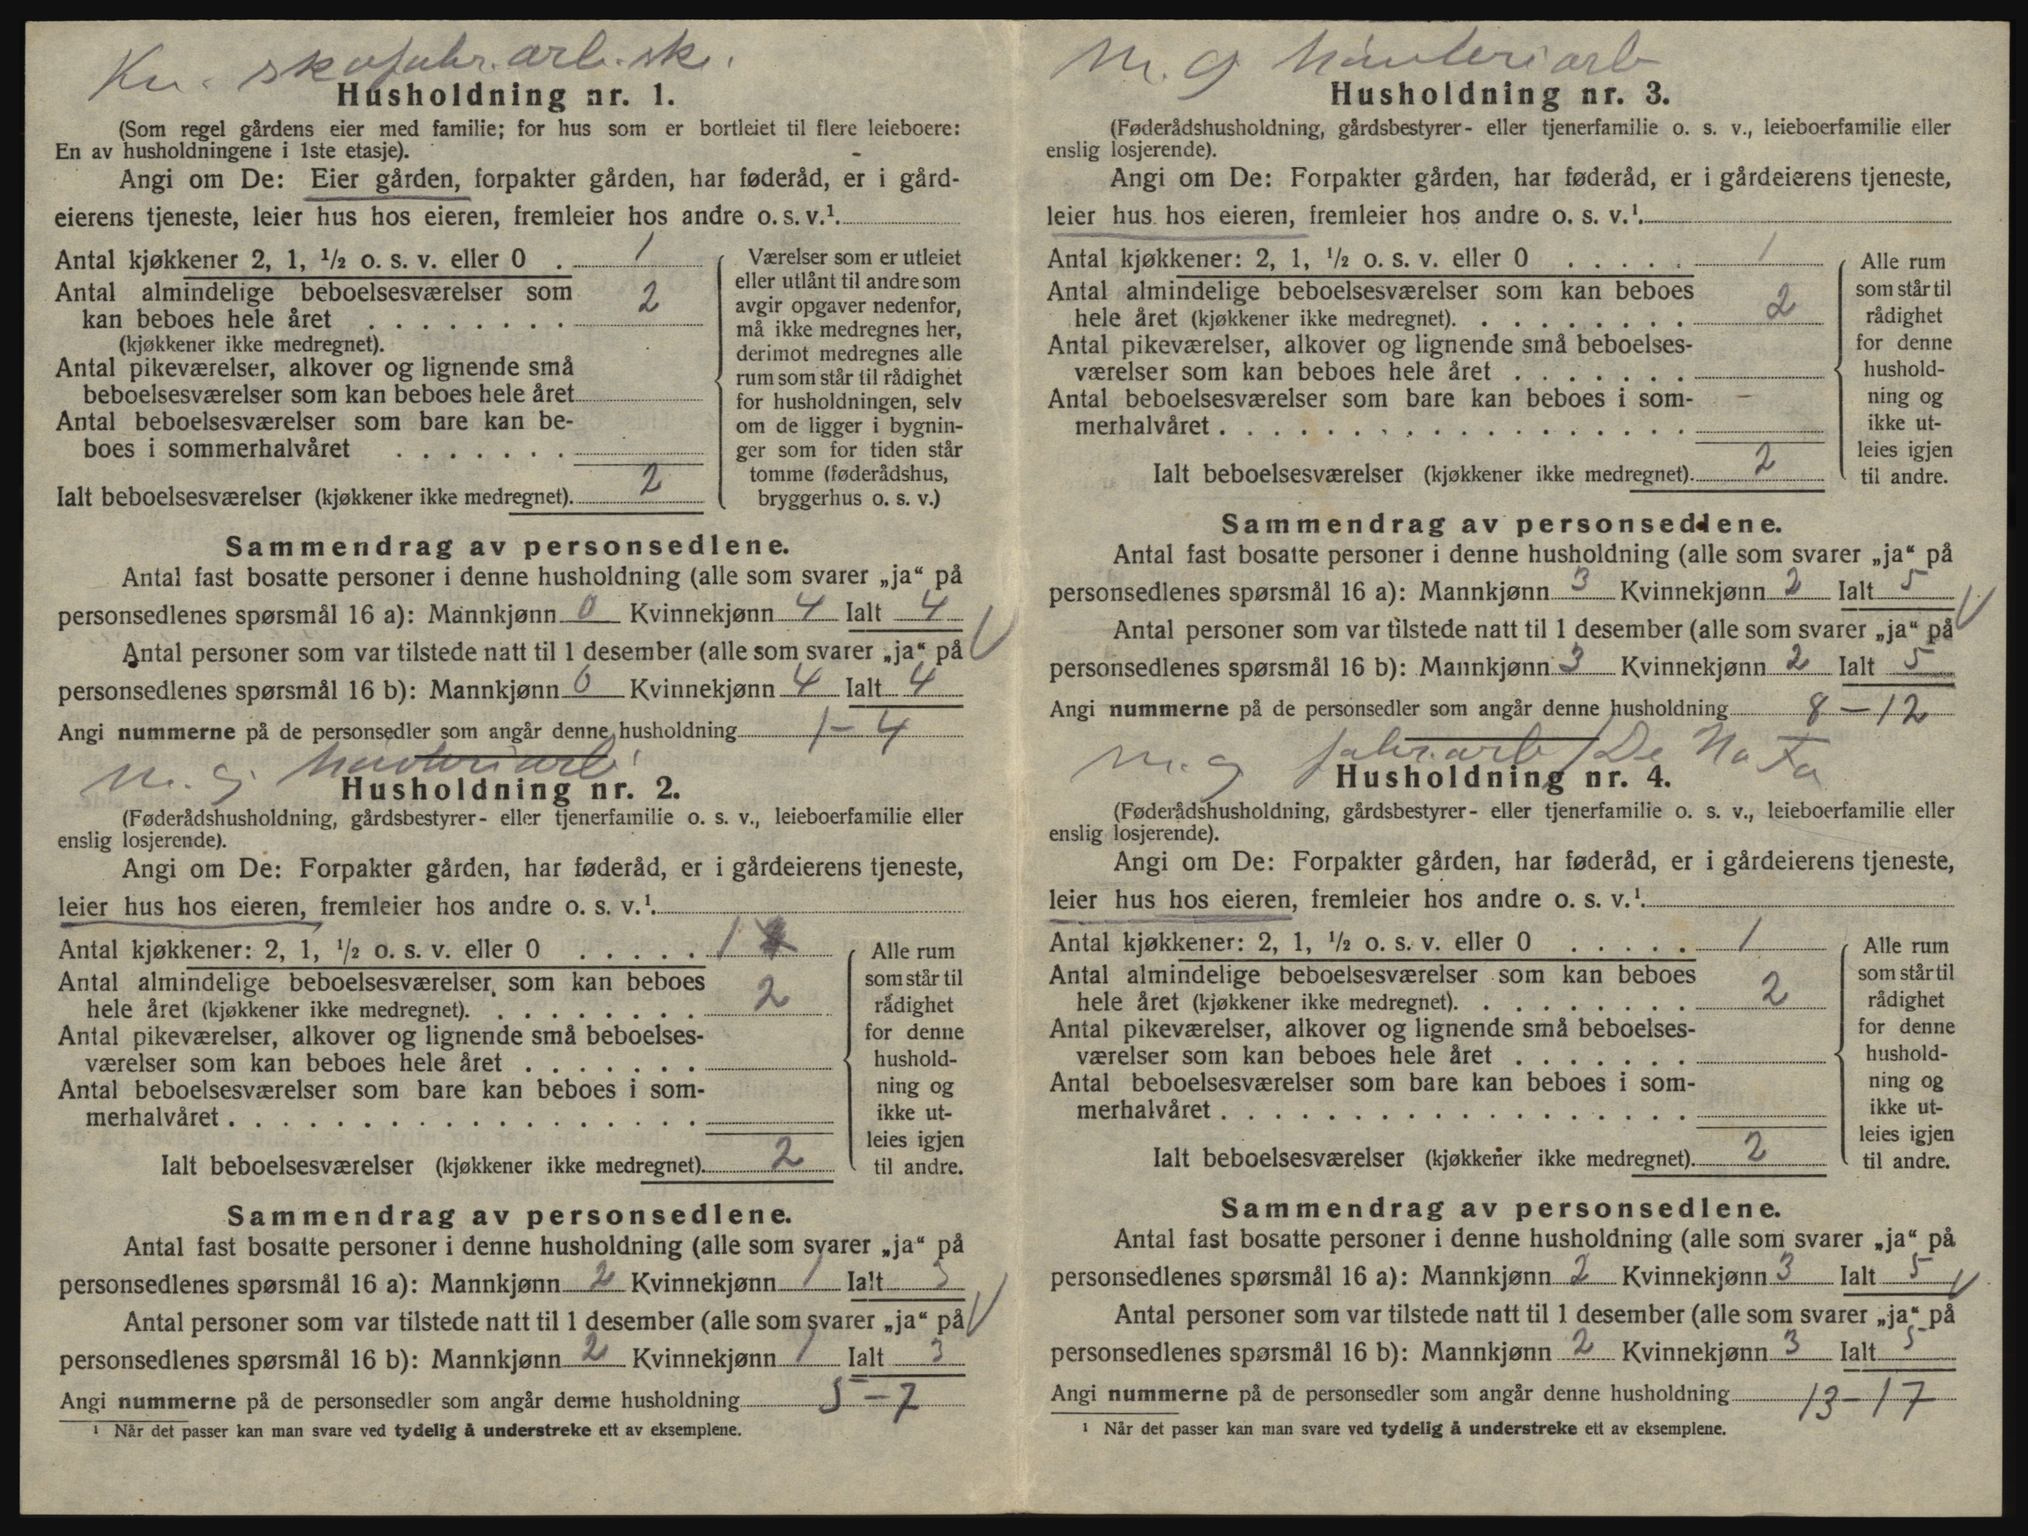 Kv. skofabr.arb. sk.
Husholdning nr. 1.
(Som regel gårdens eier med familie; for hus som er bortleiet til flere leieboere:
En av husholdningene i 1ste etasje).
Angi om De: Eier gården, forpakter gården, har føderåd, er i gård-
eierens tjeneste, leier hus hos eieren, fremleier hos andre o. s. v.¹.
Antal kjøkkener 2, 1, ½ o. s. v. eller 0 . 1
Antal almindelige beboelsesværelser som
kan beboes hele året . . . . . . . . 2
(kjøkkener ikke medregnet).
Antal pikeværelser, alkover og lignende små
beboelsesværelser som kan beboes hele året
Antal beboelsesværelser som bare kan be-
boes i sommerhalvåret . . . . . . .
Ialt beboelsesværelser (kjøkkener ikke medregnet). 2
Værelser som er utleiet
eller utlånt til andre som
avgir opgaver nedenfor,
må ikke medregnes her,
derimot medregnes alle
rum som står til rådighet
for husholdningen, selv
om de ligger i bygnin-
ger som for tiden står
tomme (føderådshus,
bryggerhus o. s. v.)
Sammendrag av personsedlene.
Antal fast bosatte personer i denne husholdning (alle som svarer „ja“ på
personsedlenes spørsmål 16 a): Mannkjønn 0 Kvinnekjønn 4 Ialt 4
Antal personer som var tilstede natt til 1 desember (alle som svarer „ja“ på
personsedlenes spørsmål 16 b): Mannkjønn 0 Kvinnekjønn 4 Ialt 4
Angi nummerne på de personsedler som angår denne husholdning 1-4
m. g.
Husholdning nr. 2.
(Føderådshusholdning, gårdsbestyrer- eller tjenerfamilie o. s. v., leieboerfamilie eller
enslig losjerende).
Angi om De: Forpakter gården, har føderåd, er i gårdeierens tjeneste,
leier hus hos eieren, fremleier hos andre o. s. v.¹.
Antal kjøkkener: 2, 1, ½ o. s. v. eller 0 . . . . . 1
Antal almindelige beboelsesværelser som kan beboes
hele året (kjøkkener ikke medregnet). . . . . . . . . 2
Antal pikeværelser, alkover og lignende små beboelses-
værelser som kan beboes hele året . . . . . . .
Antal beboelsesværelser som bare kan beboes i som-
merhalvåret . . . . . . . . . . . . . . . . . .
Ialt beboelsesværelser (kjøkkener ikke medregnet). 2
Alle rum
som står til
rådighet
for denne
hushold-
ning og
ikke ut-
leies igjen
til andre.
Sammendrag av personsedlene.
Antal fast bosatte personer i denne husholdning (alle som svarer „ja“ på
personsedlenes spørsmål 16 a): Mannkjønn 2 Kvinnekjønn 1 Ialt 3
Antal personer som var tilstede natt til 1 desember (alle som svarer „ja“ på
personsedlenes spørsmål 16 b): Mannkjønn 2 Kvinnekjønn 1 Ialt 3
Angi nummerne på de personsedler som angår denne husholdning 5-7
¹ Når det passer kan man svare ved tydelig å understreke ett av eksemplene.
m. g.
Husholdning nr. 3.
(Føderådshusholdning, gårdsbestyrer- eller tjenerfamilie o. s. v., leieboerfamilie eller
enslig losjerende).
Angi om De: Forpakter gården, har føderåd, er i gårdeierens tjeneste,
leier hus hos eieren, fremleier hos andre o. s. v.¹.
Antal kjøkkener: 2, 1, ½ o. s. v. eller 0 . . . . . 1
Antal almindelige beboelsesværelser som kan beboes
hele året (kjøkkener ikke medregnet). . . . . . . . . 2
Antal pikeværelser, alkover og lignende små beboelses-
værelser som kan beboes hele året . . . . . . .
Antal beboelsesværelser som bare kan beboes i som- -
merhalvåret . . . . . . . . . . . . . . . . . .
Ialt beboelsesværelser (kjøkkener ikke medregnet). 2
Alle rum
som står til
rådighet
for denne
hushold-
ning og
ikke ut-
leies igjen
til andre.
Sammendrag av personsedlene.
Antal fast bosatte personer i denne husholdning (alle som svarer „ja“ på
personsedlenes spørsmål 16 a): Mannkjønn 3 Kvinnekjønn 2 Ialt 5
Antal personer som var tilstede natt til 1 desember (alle som svarer „ja“ på
personsedlenes spørsmål 16 b): Mannkjønn 3 Kvinnekjønn 2 Ialt 5
Angi nummerne på de personsedler som angår denne husholdning 8-12
m. g. fabr.arb. De No Fa
Husholdning nr. 4.
(Føderådshusholdning, gårdsbestyrer- eller tjenerfamilie o. s. v., leieboerfamilie eller
enslig losjerende).
Angi om De: Forpakter gården, har føderåd, er i gårdeierens tjeneste,
leier hus hos eieren, fremleier hos andre o. s. v.¹.
Antal kjøkkener: 2, 1, ½ o. s. v. eller 0 . . . . . 1
Antal almindelige beboelsesværelser som kan beboes
hele året (kjøkkener ikke medregnet). . . . . . . . . 2
Antal pikeværelser, alkover og lignende små beboelses-
værelser som kan beboes hele året . . . . . . .
Antal beboelsesværelser som bare kan beboes i som-
merhalvåret . . . . . . . . . . . . . . . . . .
Ialt beboelsesværelser (kjøkkener ikke medregnet). 2
Alle rum
som står til
rådighet
for denne
hushold-
ning og
ikke ut-
leies igjen
til andre.
Sammendrag av personsedlene.
Antal fast bosatte personer i denne husholdning (alle som svarer „ja“ på
personsedlenes spørsmål 16 a): Mannkjønn 2 Kvinnekjønn 3 Ialt 5
Antal personer som var tilstede natt til 1 desember (alle som svarer „ja“ på
personsedlenes spørsmål 16 b): Mannkjønn 2 Kvinnekjønn 3 Ialt 5
Angi nummerne på de personsedler som angår denne husholdning 13-17
¹ Når det passer kan man svare ved tydelig å understreke ett av eksemplene.